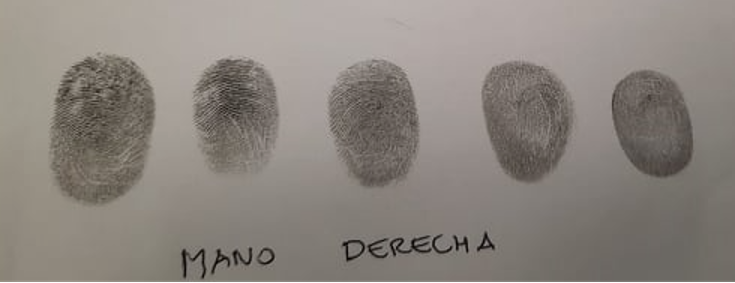 MANO DERECHA